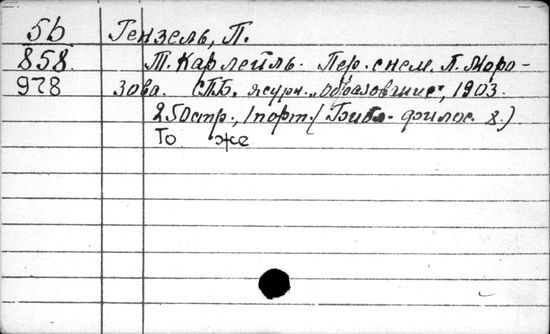 5b Гензель, П.
858. Т. Карлейль. Пер. с нем. П. Моро-
978 зова. СПБ. журн. „Образование", 1903.
250 стр., 1 порт. (Библ. филос. 8.)
То же